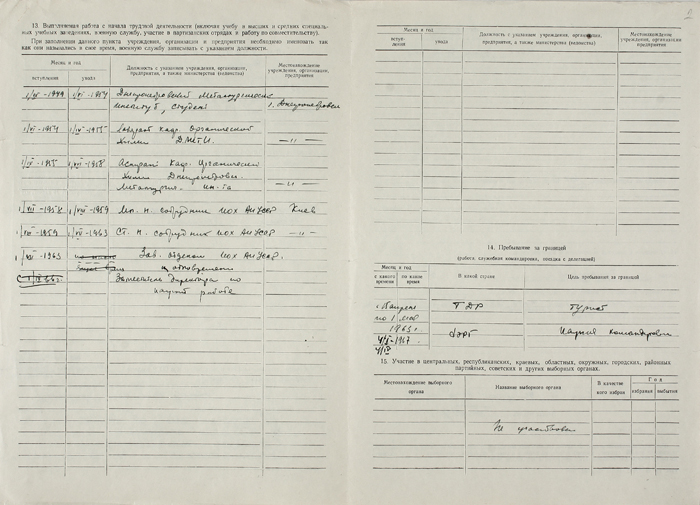 13. Выполняемая работа с начала трудовой деятельности (включая учебу в высших и средних специаль-
ных учебных заведениях, военную службу, участие в партизанских отрядах и работу по совместительству).
При заполнении данного пункта учреждения, организации и предприятия необходимо именовать так
как они назывались в свое время, военную службу записывать с указанием должности.
Месяц и год
вступления
ухода
Должность с указанием учреждения, организации,
предприятия, а также министерства (ведомства)
Местонахождение
учреждения, организации,
предприятия
1/IX-1949 1/VII-1954 Днепропетровский Металлургический
институт, студент г. Днепропетровск
Лаборант каф. органической
химии ДМетИ. —"—
Аспирант каф. Органической
химии Днепропетровск.
Металлургич. ин-та —"—
1/XII-1958 Мл. н. сотрудник ИОХ АН УССР Киев
1/XII-1959 1/XII-1963 Ст. н. сотрудник ИОХ АН УССР —"—
1/XII-1963 Зав. отделом ИОХ АН УССР.
и одновременно
Заместитель директора по
научной работе
Месяц и год
вступ-
ления
ухода
Должность с указанием учреждения, организации,
предприятия, а также министерства (ведомства)
Местонахождение
учреждения, организации,
предприятия
14. Пребывание за границей
(работа, служебная командировка, поездка с делегацией)
Месяц и год
с какого
времени
по какое
время
В какой стране
Цель пребывания за границей
с 18 апреля ГДР Турист
по 1 мая
1963 г.
1967 ФРГ Научная командировка
15. Участие в центральных, республиканских, краевых, областных, окружных, городских, районных
партийных, советских и других выборных органах.
Местонахождение выборного
органа
Название выборного органа
В качестве
кого избран
Год
избрания
выбытия
Не участвовал